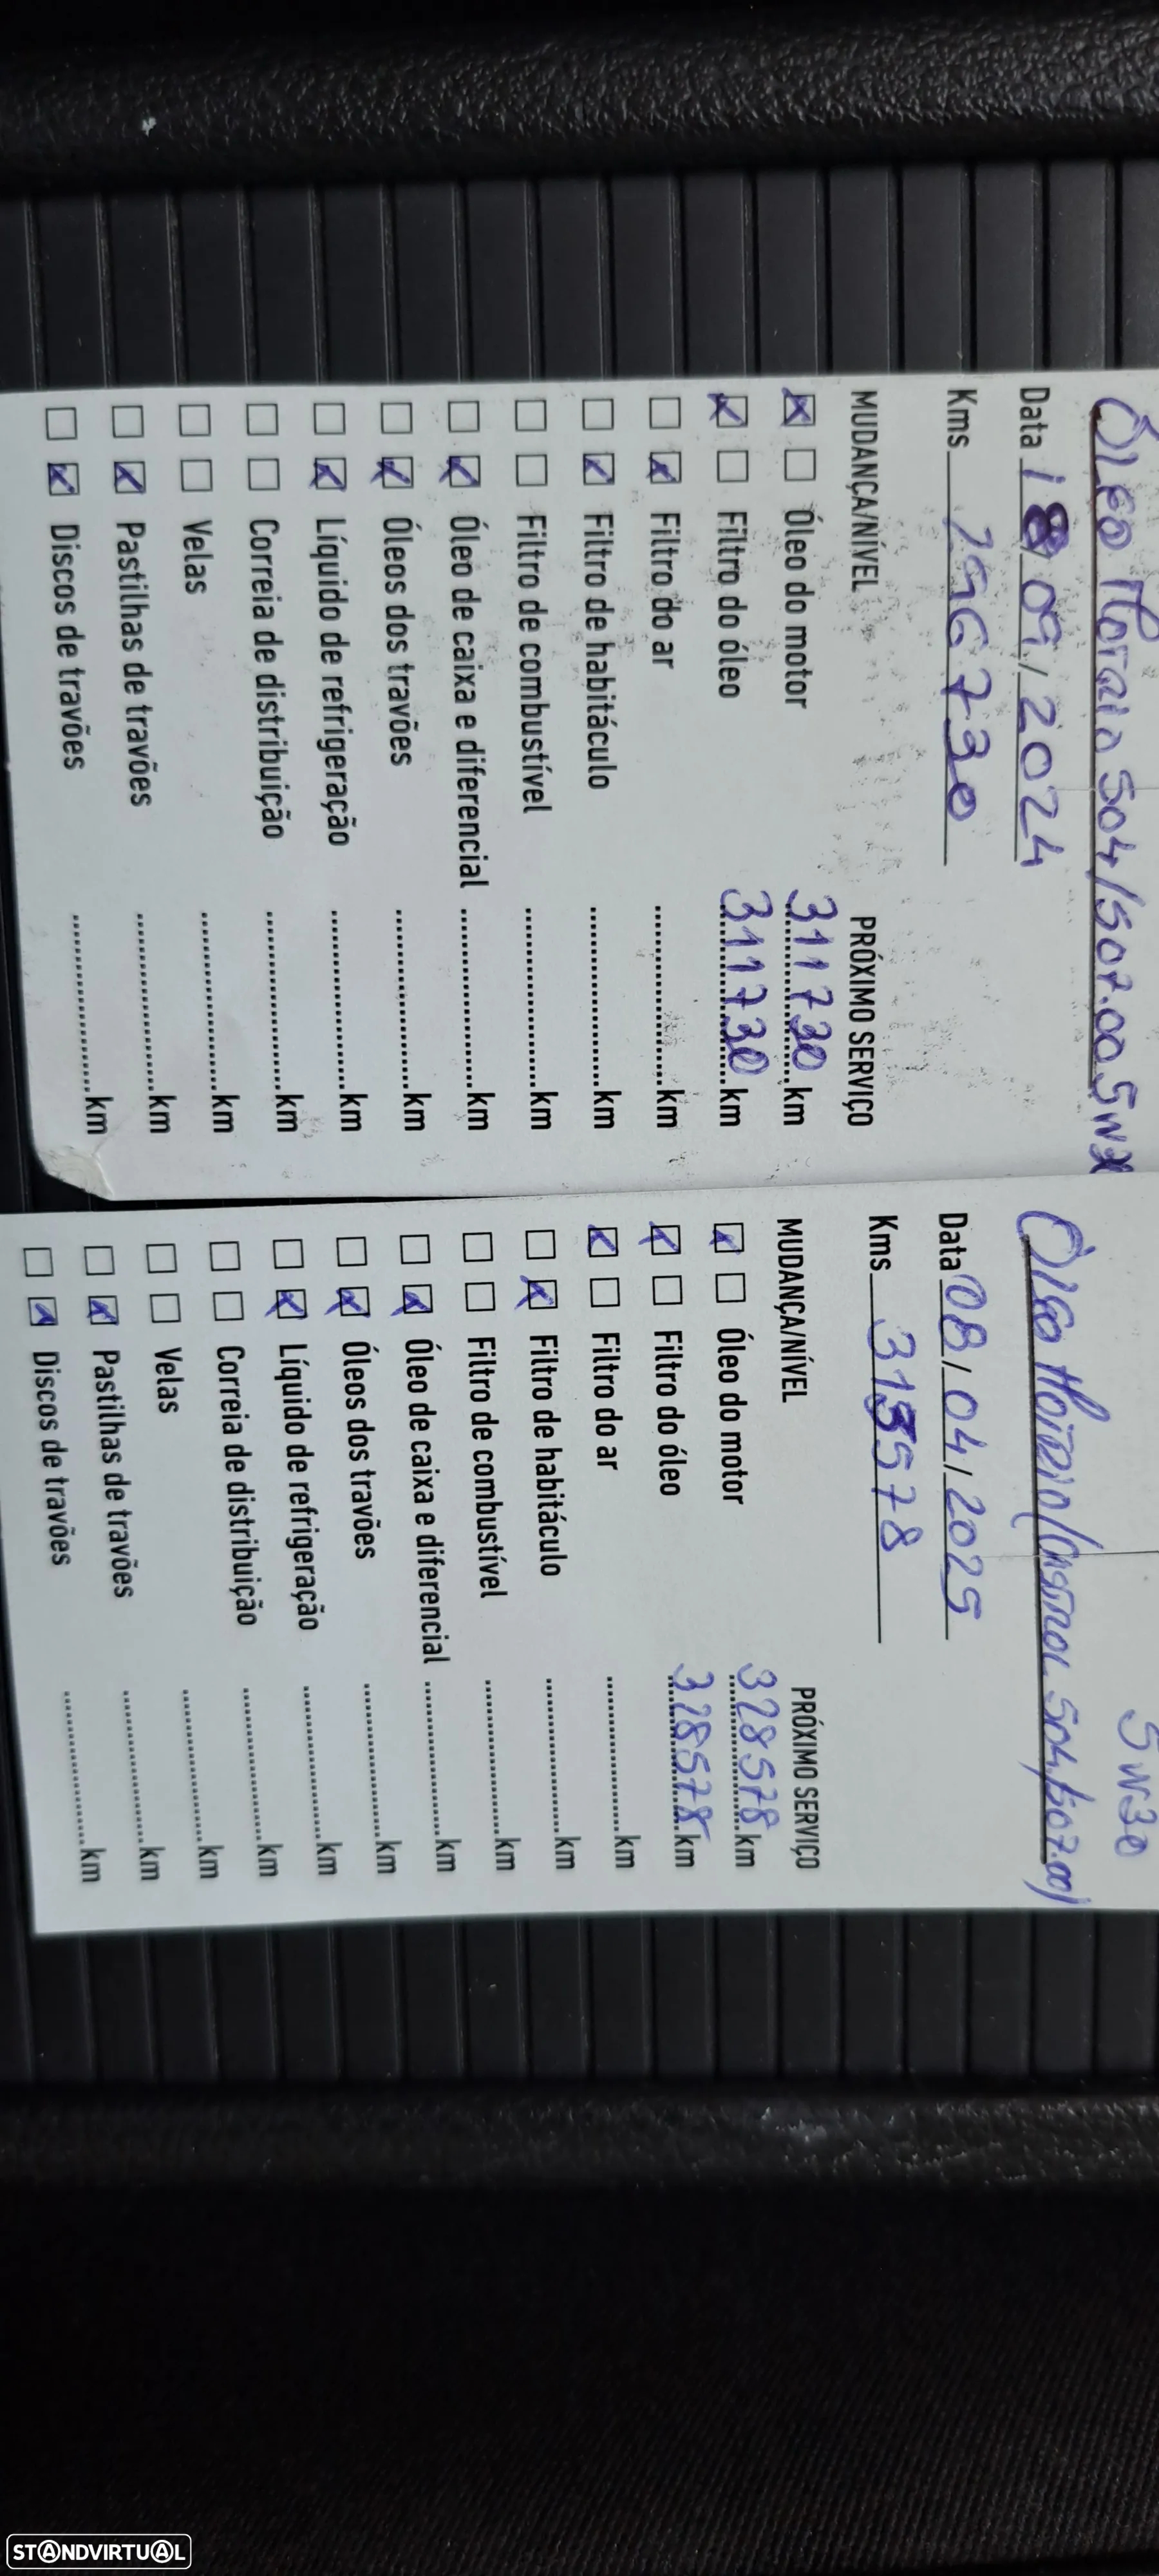 Óleo Motor 504/507.00 5W3
Data 18/09/2024
Kms 296730
MUDANÇA/NÍVEL PRÓXIMO SERVIÇO
Óleo do motor 311730 km
Filtro do óleo 311730 km
Filtro do ar ........ km
Filtro de habitáculo ........ km
Filtro de combustível ........ km
Óleo de caixa e diferencial ........ km
Óleos dos travões ........ km
Líquido de refrigeração ........ km
Correia de distribuição ........ km
Velas ........ km
Pastilhas de travões ........ km
Discos de travões ........ km
5W30
Óleo Motor (Castrol 504/507.00)
Data 08/04/2025
Kms 313578
MUDANÇA/NÍVEL PRÓXIMO SERVIÇO
Óleo do motor 328578 km
Filtro do óleo 328578 km
Filtro do ar ........ km
Filtro de habitáculo ........ km
Filtro de combustível ........ km
Óleo de caixa e diferencial ........ km
Óleos dos travões ........ km
Líquido de refrigeração ........ km
Correia de distribuição ........ km
Velas ........ km
Pastilhas de travões ........ km
Discos de travões ........ km
STANDVIRTUAL